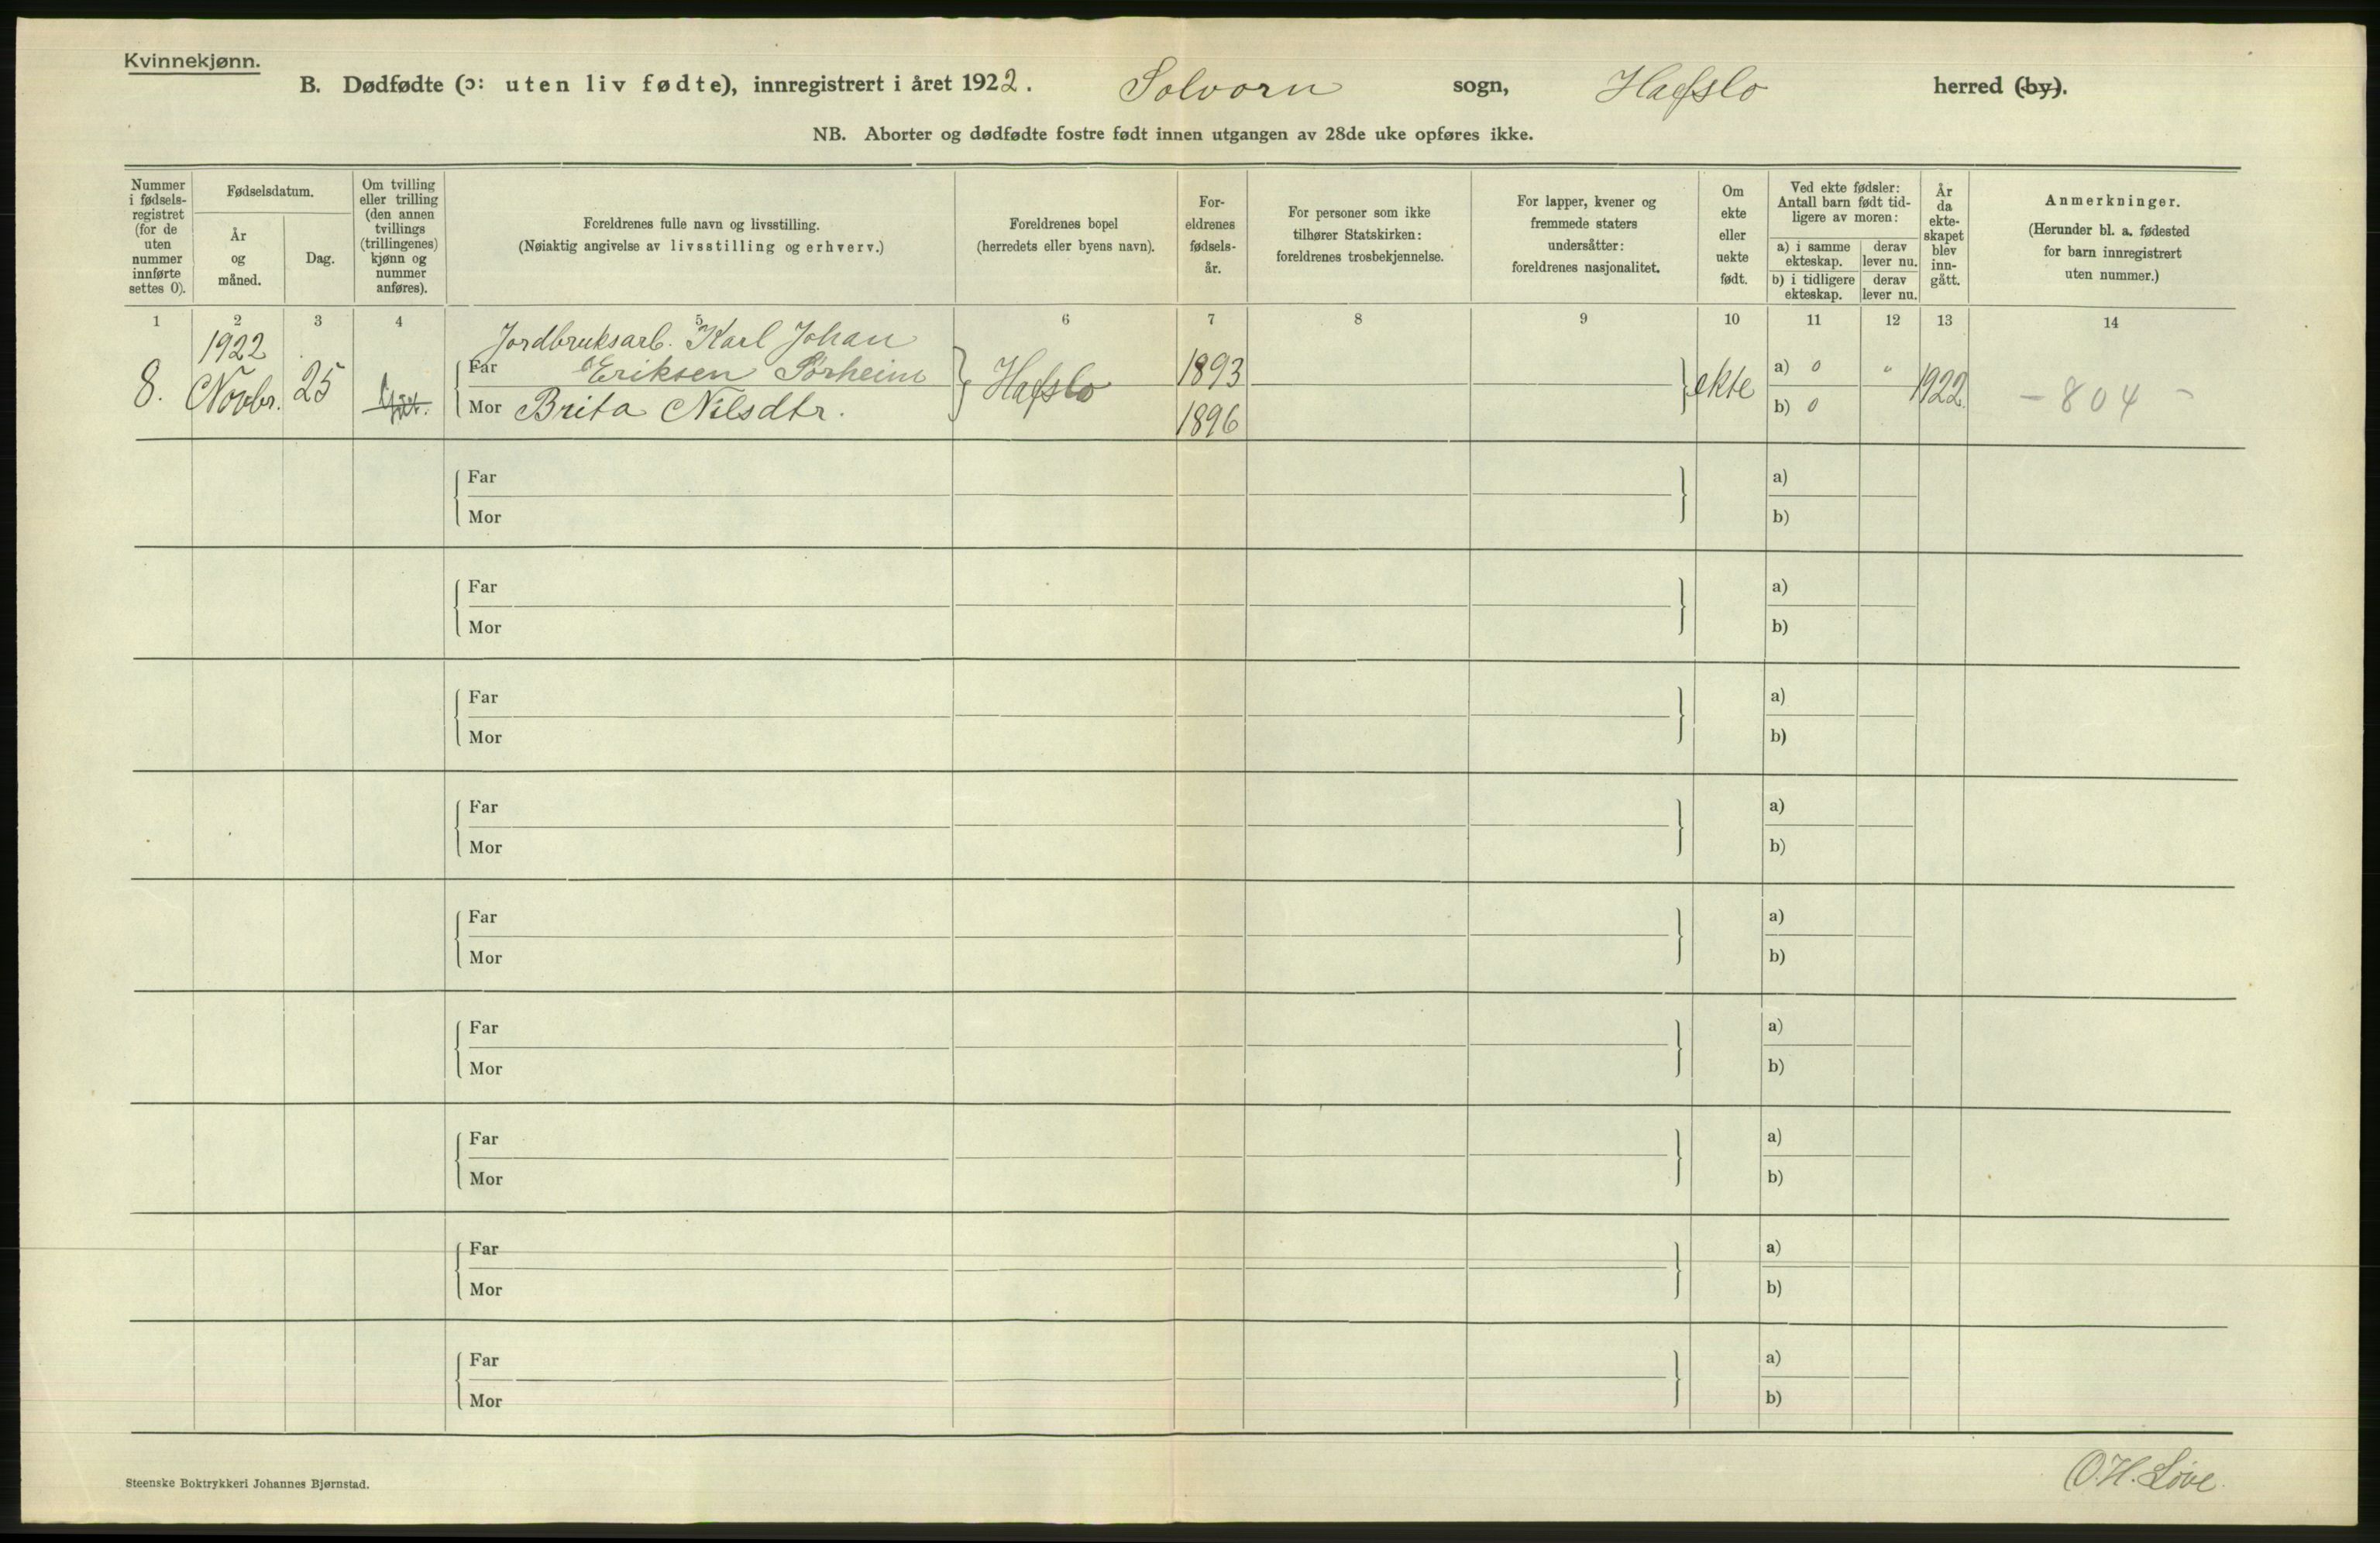 Kvinnekjønn.
B. Dødfødte (ɔ: uten liv fødte), innregistrert i året 1922. Solvorn sogn, Hafslo herred (by).
NB. Aborter og dødfødte fostre født innen utgangen av 28de uke opføres ikke.
Nummer
i fødsels-
registret
(for de
uten
nummer
innførte
settes 0).
Fødselsdatum.
År
og
måned.
Dag.
Om tvilling
eller trilling
(den annen
tvillings
(trillingenes)
kjønn og
nummer
anføres).
Foreldrenes fulle navn og livsstilling.
(Nøiaktig angivelse av livsstilling og erhverv.)
Foreldrenes bopel
(herredets eller byens navn).
For-
eldrenes
fødsels-
år.
For personer som ikke
tilhører Statskirken:
foreldrenes trosbekjennelse.
For lapper, kvener og
fremmede staters
undersåtter:
foreldrenes nasjonalitet.
Om
ekte
eller
uekte
født.
Ved ekte fødsler:
Antall barn født tid-
ligere av moren:
a) i samme
ekteskap.
derav
lever nu.
b) i tidligere
ekteskap.
derav
lever nu.
År
da
ekte-
skapet
blev
inn-
gått.
Anmerkninger.
(Herunder bl. a. fødested
for barn innregistrert
uten nummer.)
1 2 3 4 5 6 7 8 9 10 11 12 13 14
8.
1922
Novbr.
25
Jordbruksarb. Karl Johan
Far Eriksen Sørheim
Mor Brita Nilsdtr.
Hafslo
1893
1896
ekte
a) 0 "
b) 0
1922
- 804 -
Far a)
Mor b)
Far a)
Mor b)
Far a)
Mor b)
Far a)
Mor b)
Far a)
Mor b)
Far a)
Mor b)
Far a)
Mor b)
Far a)
Mor b)
Far a)
Mor b)
Steenske Boktrykkeri Johannes Bjørnstad.
O.H. Løve.